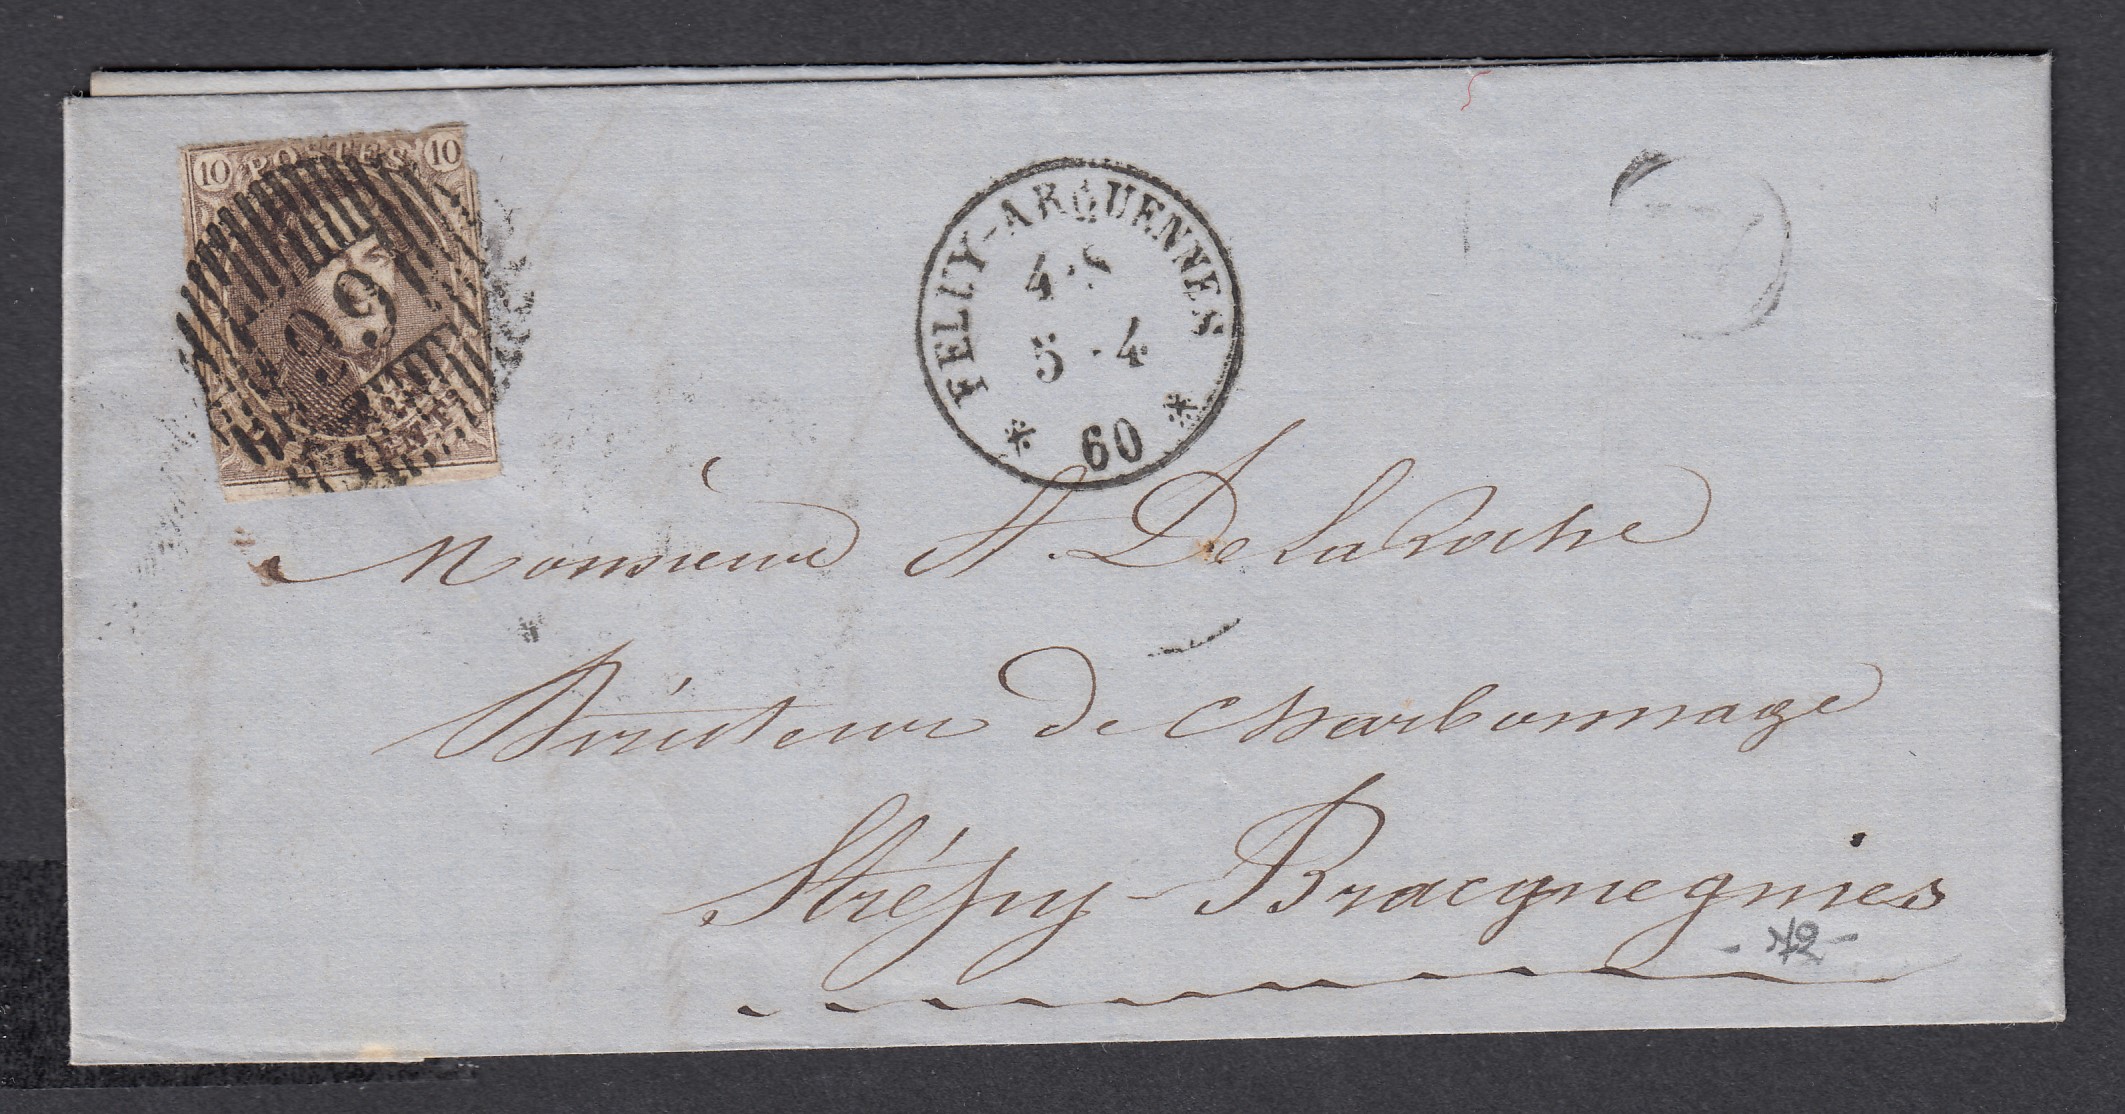 10 POSTES 10
CENT
FELUY-ARQUENNES
4·S
5 · 4
60
Monsieur A. DeLaRoche
Directeur de Charbonnage
Strépy-Bracquegnies